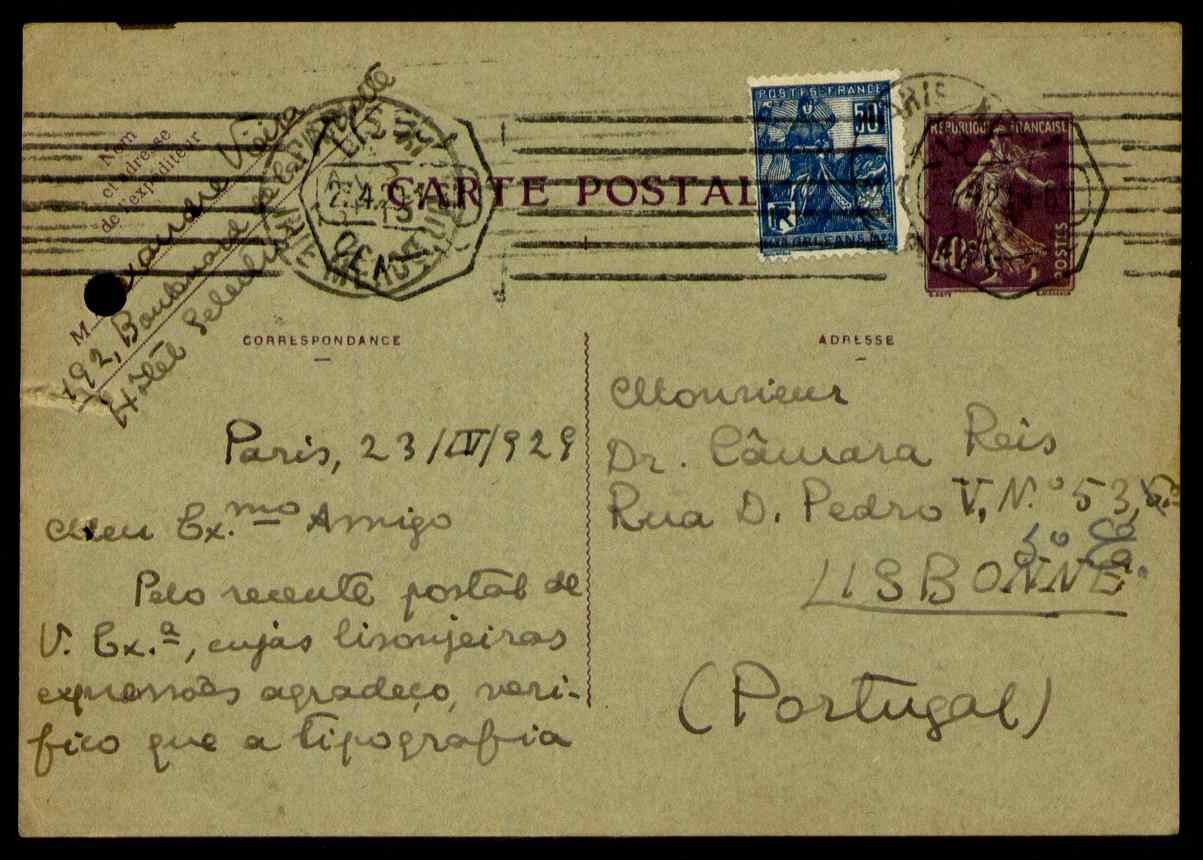 Nom
et adresse
de l'expéditeur
M
Vieira
192, Boulevard
Hôtel
CARTE POSTALE
POSTES FRANCE
50
ORLEANS
REPUBLIQUE FRANÇAISE
40
POSTES
PARIS
CORRESPONDANCE
Paris, 23/IV/929
Meu Ex.mo Amigo
Pelo recente postal de
V. Ex.ª, cujas lisonjeiras
expressões agradeço, veri-
fico que a tipografia
ADRESSE
Monsieur
Dr. Câmara Reis
Rua D. Pedro V, N.º 53,
LISBONNE
(Portugal)